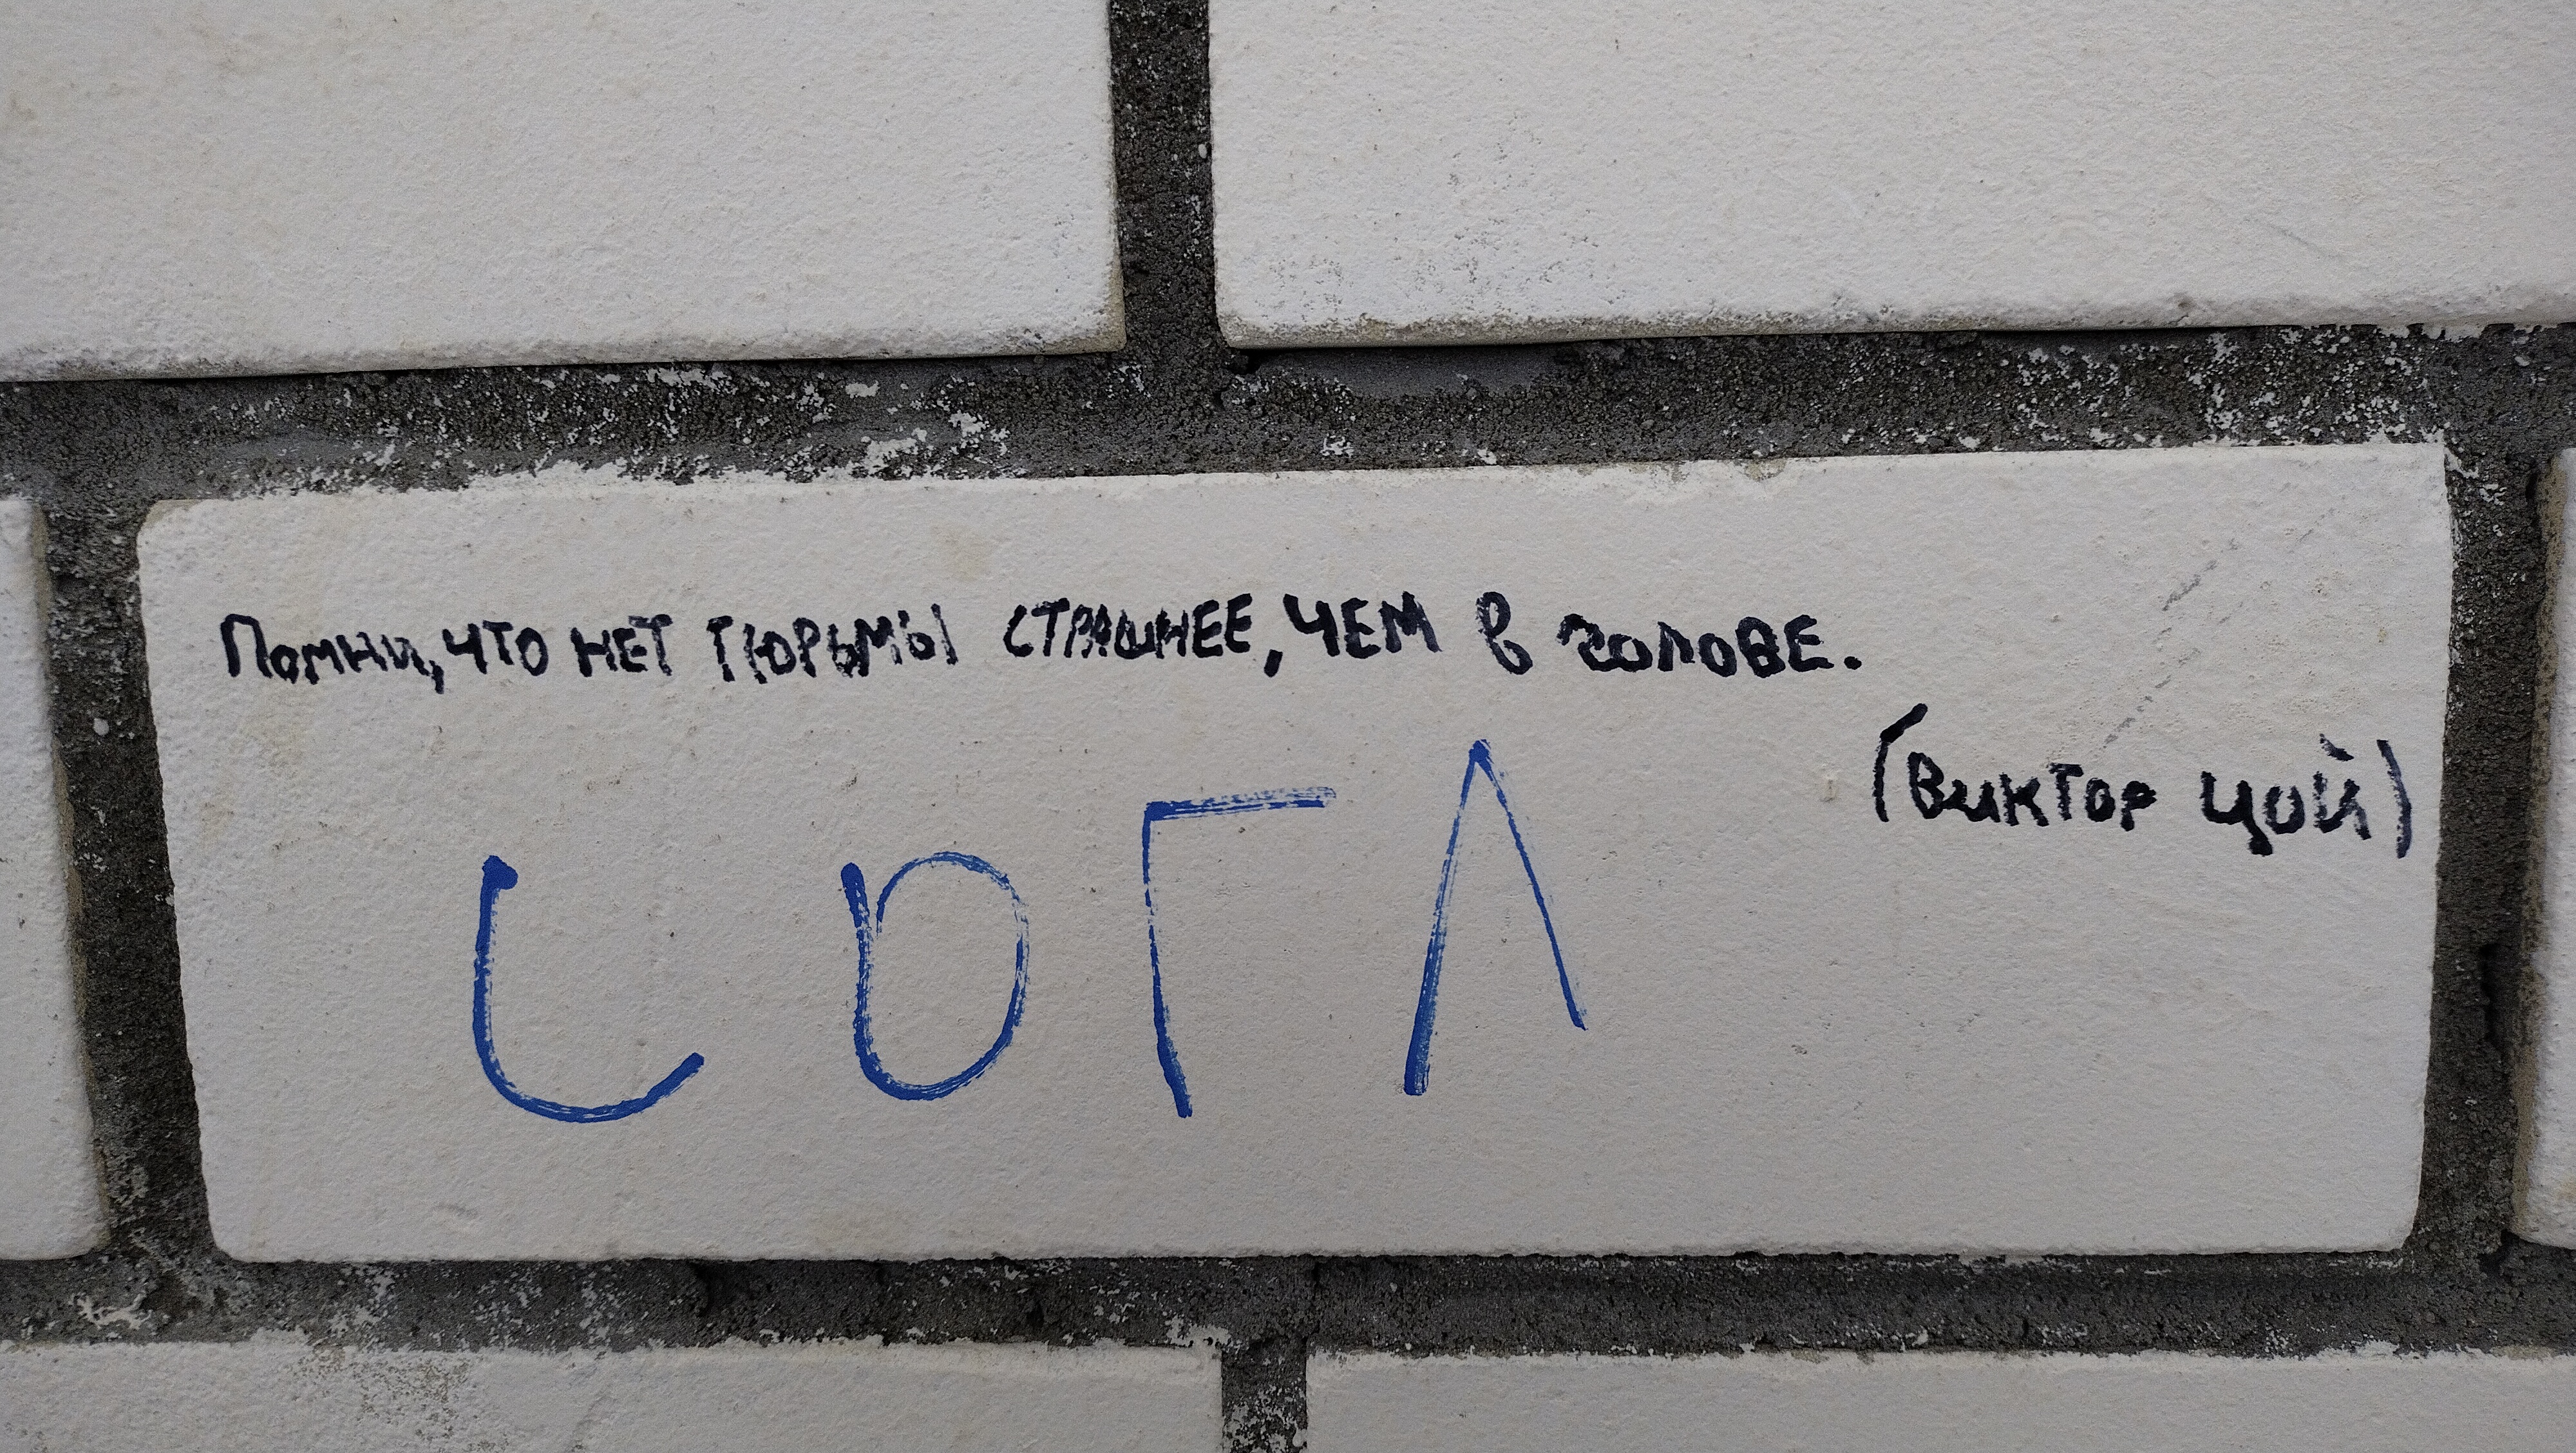 Помни, что нет тюрьмы страшнее, чем в голове.
(Виктор Цой)
СОГЛ